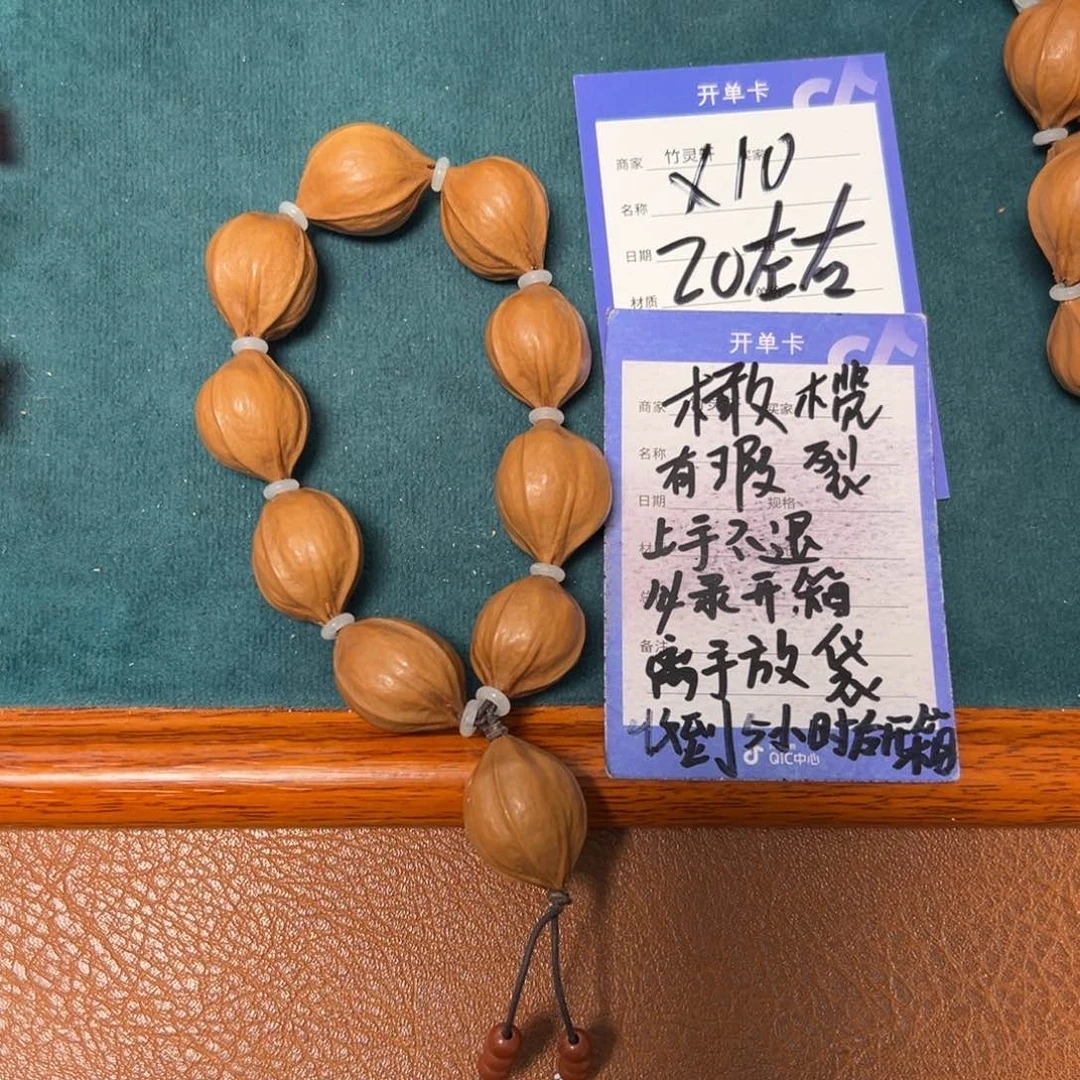 开单卡
商家 竹灵轩 买家
x10
名称
20左右
日期
材质
开单卡
商家 买家
橄榄
名称
有瑕裂
日期 规格
上手不退
必录开箱
备注
离手放袋
收到5小时后开箱
QIC中心